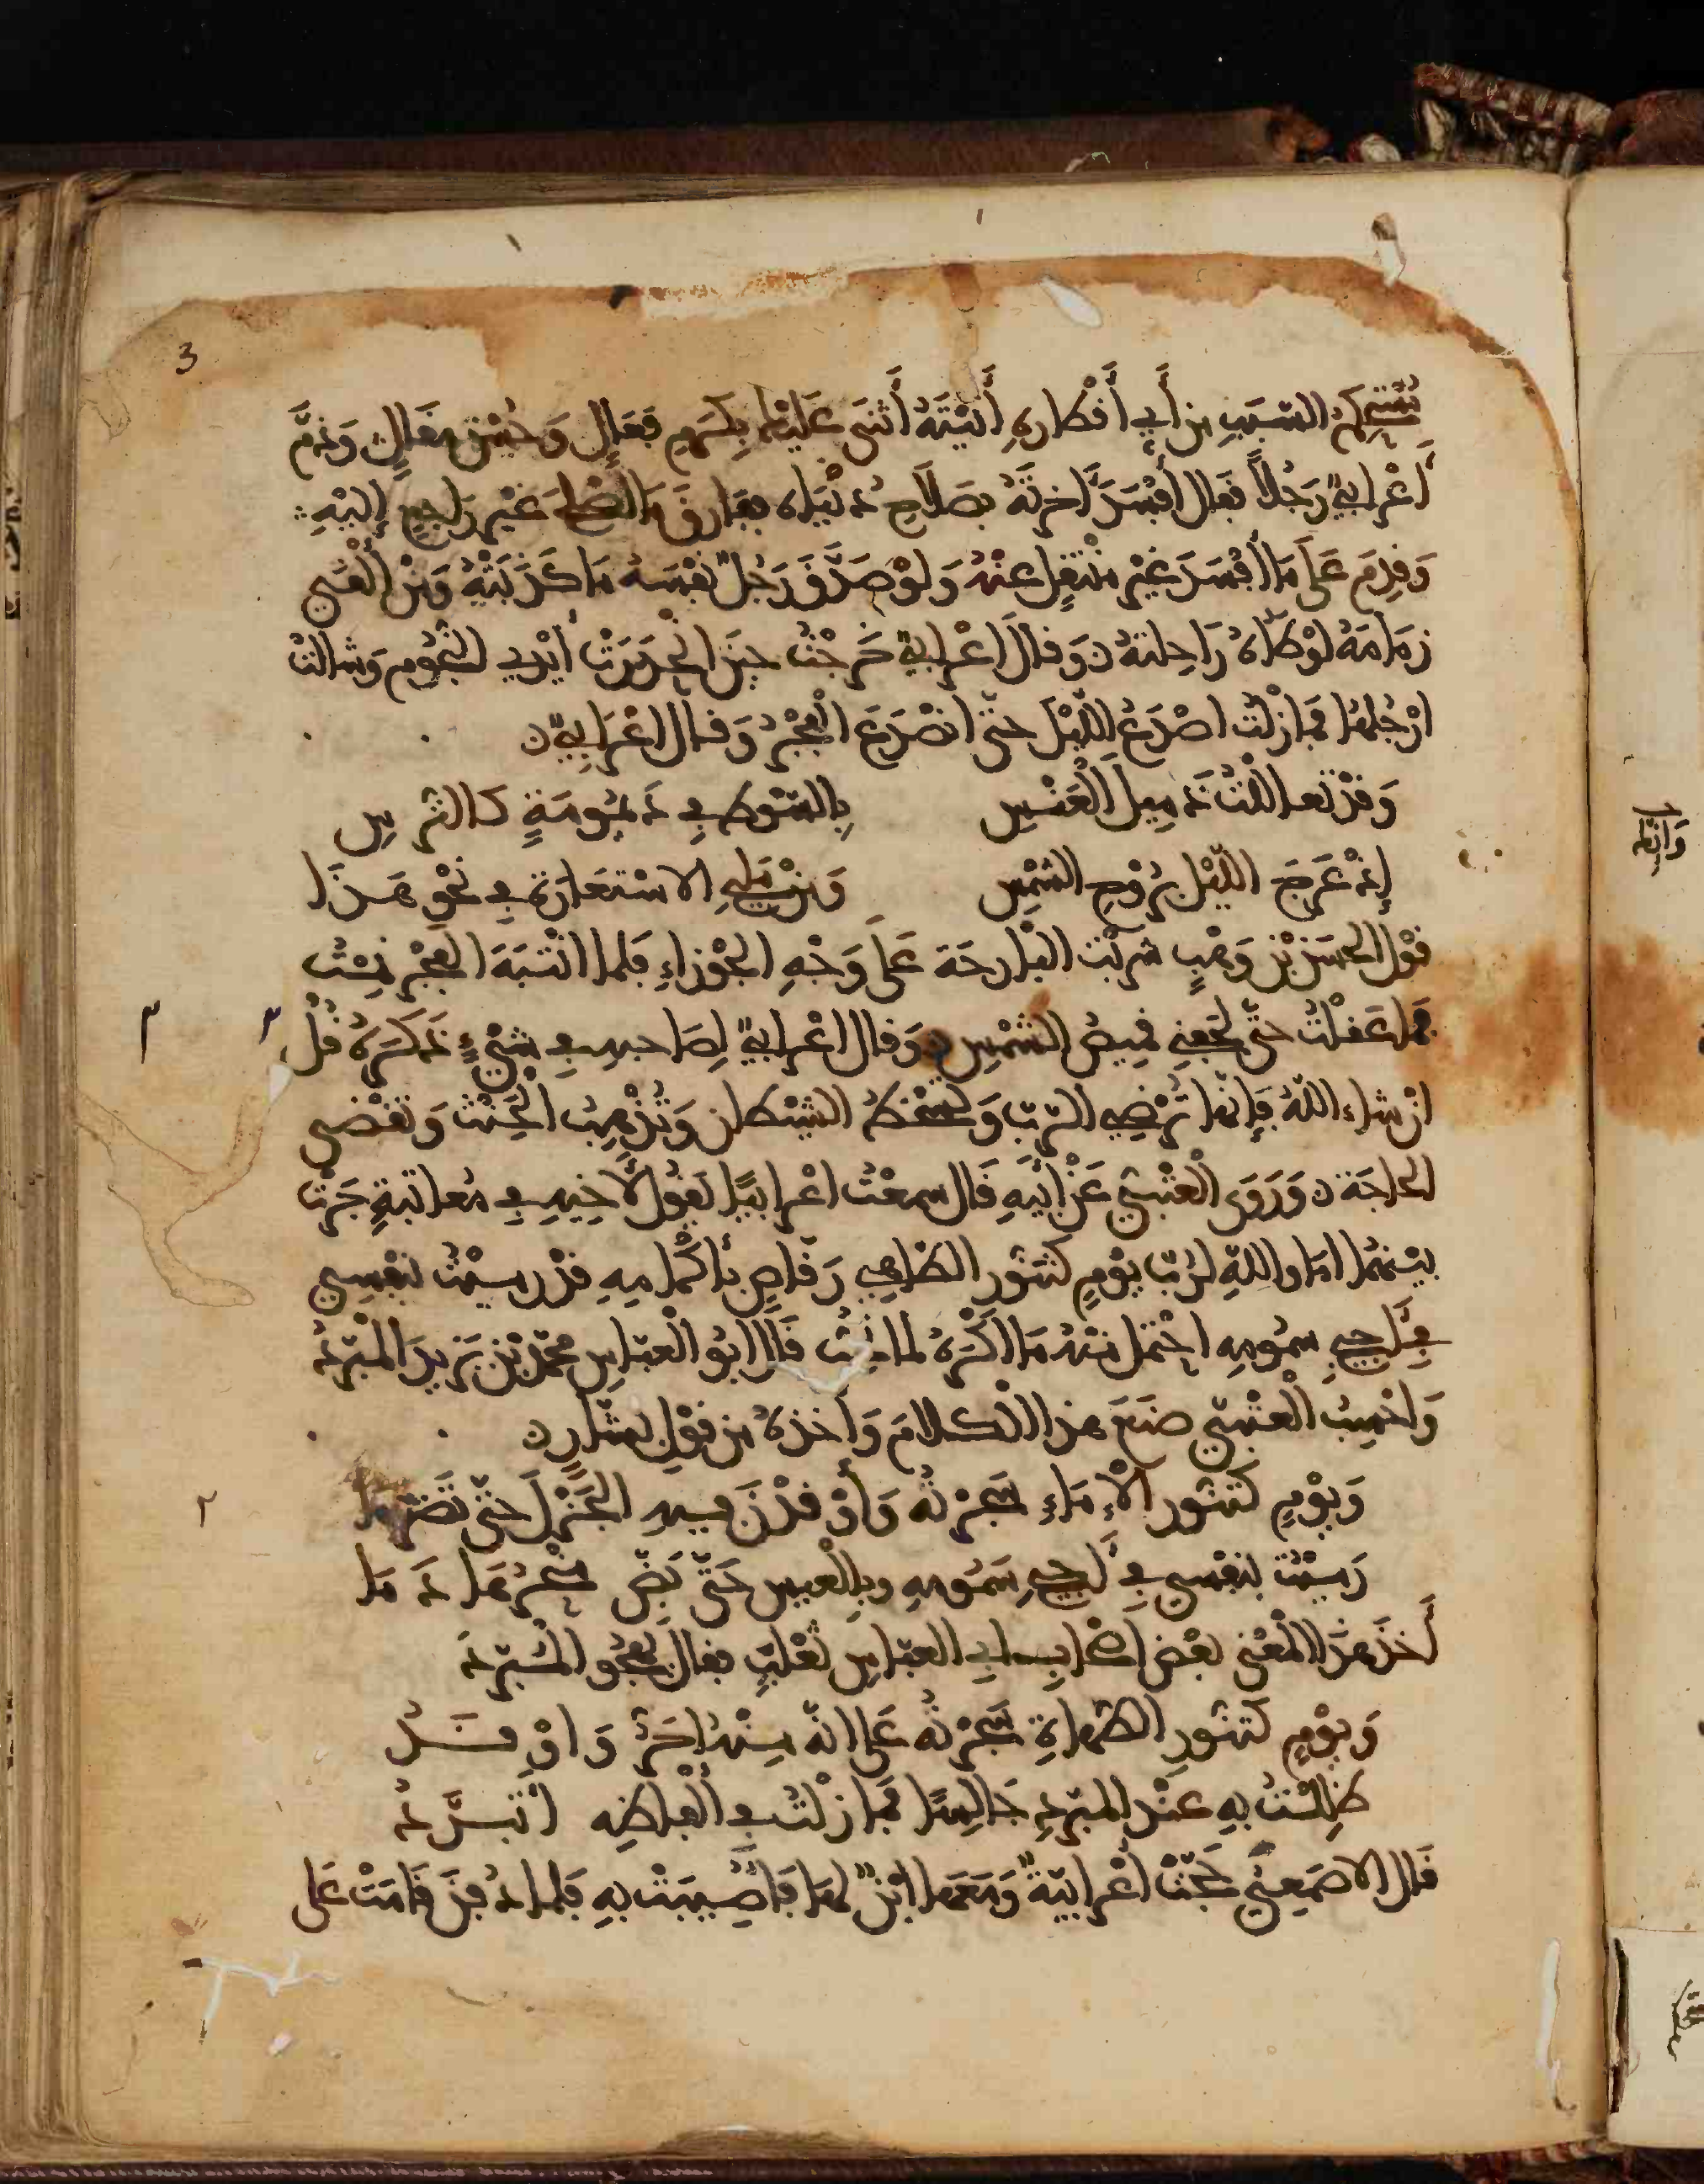 3
السبب من أي أقطاره أتيته أثنى عليك بكرم فعال وحسن مقال وذمّ
أعرابيّ رجلاً فقال أفسد اخرته بصلاح دنياه ففارق ما أصلح غير راجع إليه
وقدم على ما أفسد غير منتقل عنه ولو صدّق رجل نفسه ما كذبته ومن ألقى
زمامه أوطاه راحلته وقال اعرابيّ خرجت حين انحدرت أيدي النجوم وشالت
ارجلها فما زلت اصدع الليل حتى انصدع الفجر وقال اعرابيّ
وقد تعاللت ذميل العنس بالسوط في ديمومة كالترس
إذ عرج الليل بروح الشمس ومن مليح الاستعارة في نحو هذا
قول الحسن بن وهب شربت البارحة على وجه الجوزاء فلما انتبه الفجر نمت
فما عقلت حتى لحفني قميص الشمس وقال اعرابيّ لصاحبه في شيء ذكره قل
ان شاء الله فإنها ترضي الرب وتسخط الشيطان وتذهب الحنث وتقضي
الحاجة وروى العتبي عن أبيه قال سمعت اعرابيًا يقول لأخيه في معاتبة جرت
بينهما اما والله لربّ يوم كتنور الطاهي رقاص بأكمامه قد رميت نفسي
في أجيج سمومه احتمل منه ما اكره لما تحب قال ابو العباس محمد بن يزيد المبرد
واحسب العتبي صنع هذا الكلام وأخذه من قول بشار
ويوم كتنور الإماء سجرنه وأوقدن فيه الجزل حتى تضرما
رميت بنفسي في أجيج سمومه وبالعيس حتى بضّ منخرها دما
أخذ هذا المعنى بعض أصحاب أبي العباس ثعلب فقال يهجو المبرد
ويوم كتنور الطهاة سجرته على انه منه احر واوقد
ظللت به عند المبرد جالسا فما زلت في ألفاظه اتبرّد
قال الاصمعي حجت أعرابية ومعها ابن لها فأصيبت به فلما دفن قامت على